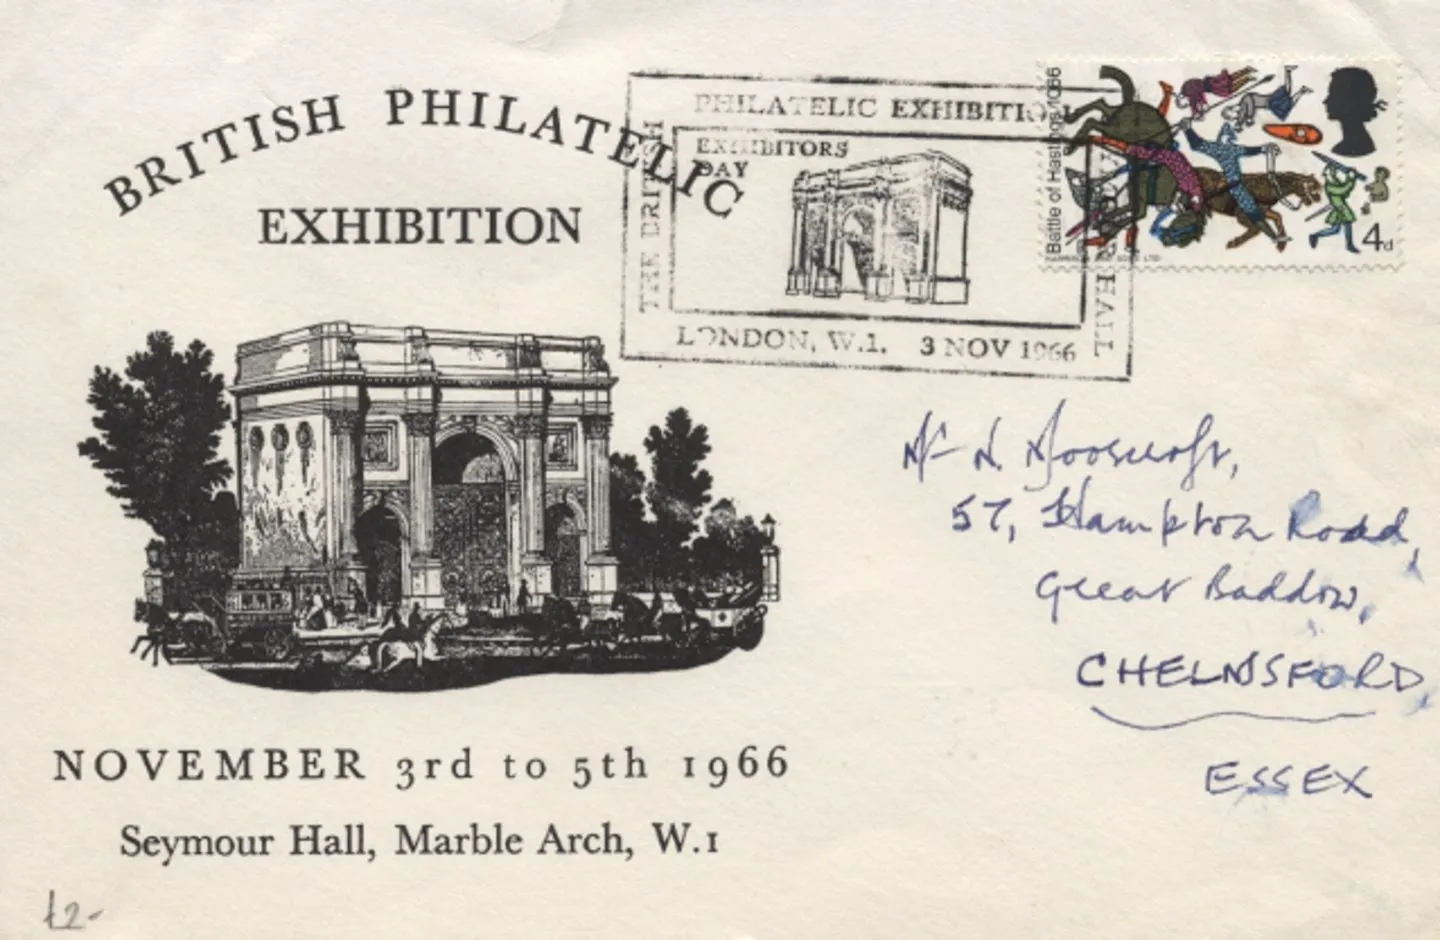 BRITISH PHILATELIC
EXHIBITION
PHILATELIC EXHIBITION
EXHIBITORS
DAY
THE BRITISH
SEYMOUR HALL
LONDON, W.1. 3 NOV 1966
Battle of Hastings 1066
4d
HARRISON AND SONS LTD
57, Hampton Road,
Great Baddow,
CHELMSFORD,
ESSEX
NOVEMBER 3rd to 5th 1966
Seymour Hall, Marble Arch, W.1
£2-